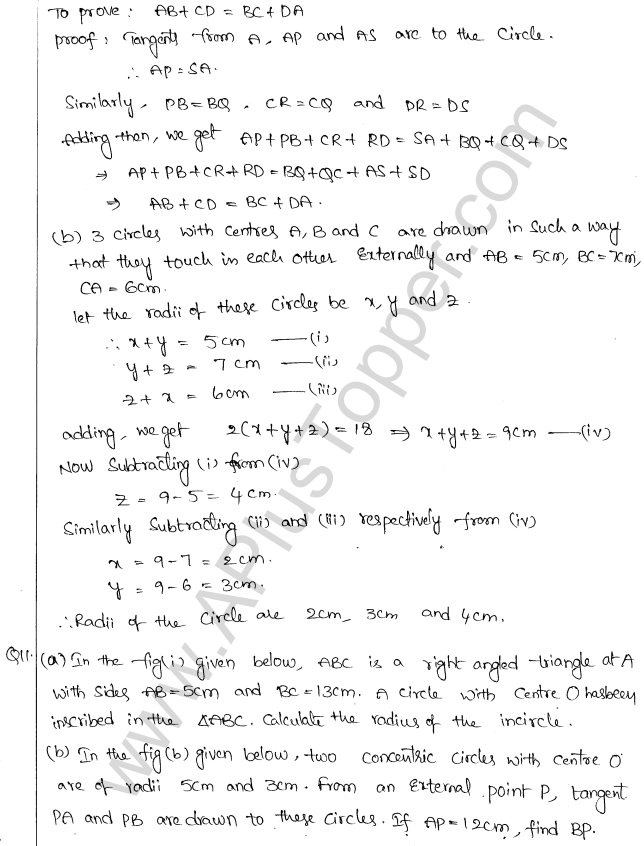 To prove: AB+CD = BC+DA
proof: Tangents from A, AP and AS are to the Circle.
∴ AP=SA.
Similarly, PB=BQ, CR=CQ and DR=DS
Adding then, we get AP+PB+CR+RD=SA+BQ+CQ+DS
⇒ AP+PB+CR+RD=BQ+QC+AS+SD
⇒ AB+CD = BC+DA.
(b) 3 circles with centres A, B and C are drawn in such a way
that they touch in each other Externally and AB = 5cm, BC=7cm,
CA=6cm.
let the radii of these circles be x, y and z.
∴ x+y = 5cm —(i)
y+z = 7cm —(ii)
z+x = 6cm —(iii)
adding, we get 2(x+y+z)=18 ⇒ x+y+z=9cm —(iv)
Now Subtracting (i) from (iv)
z = 9-5 = 4cm.
Similarly Subtracting (ii) and (iii) respectively from (iv)
x = 9-7 = 2cm.
y = 9-6 = 3cm.
∴ Radii of the circle are 2cm, 3cm and 4cm.
Q11. (a) In the fig(i) given below, ABC is a right angled triangle at A
with sides AB=5cm and BC=13cm. A circle with centre O hasbeen
inscribed in the ΔABC. Calculate the radius of the incircle.
(b) In the fig(b) given below, two concentric circles with centre O
are of radii 5cm and 3cm. from an External point P, tangent
PA and PB are drawn to these circles. If AP=12cm, find BP.
www.APlusTopper.com